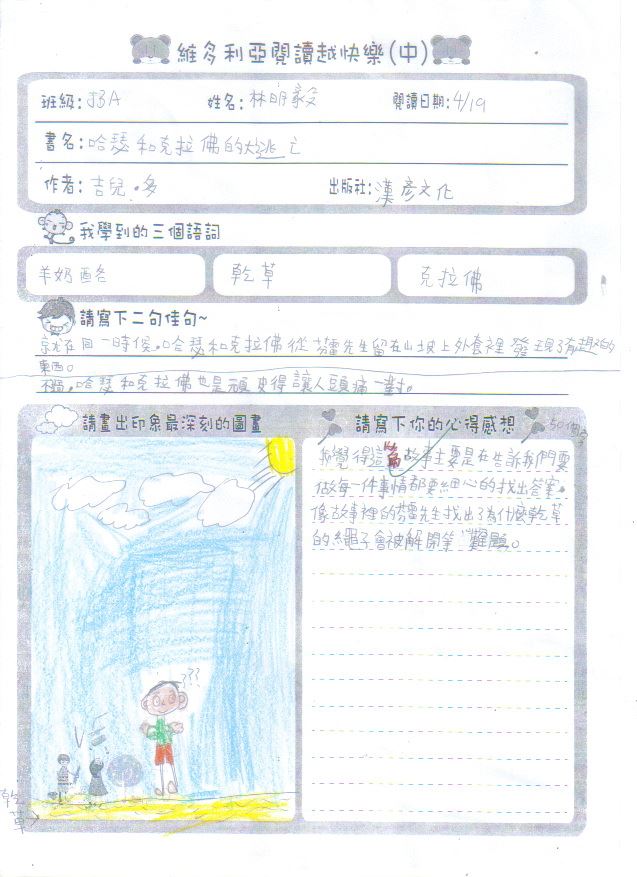 維多利亞閱讀越快樂(中)
班級:J3A 姓名:林明毅 閱讀日期:4/19
書名:哈瑟和克拉佛的大逃亡
作者:吉兒·多 出版社:漢彥文化
我學到的三個語詞
羊奶酪 乾草 克拉佛
請寫下二句佳句~
就在同一時候。哈瑟和克拉佛從芬雷先生留在山坡上外套裡發現了有趣的
東西。
不過,哈瑟和克拉佛也是頑皮得讓人頭痛一對。
請畫出印象最深刻的圖畫 請寫下你的心得感想 50個字
我覺得這篇故事主要是在告訴我們要
做每一件事情都要細心的找出答案。
像故事裡的芬雷先生找出了為什麼乾草
的繩子會被解開等難題。
???
VS
乾草→